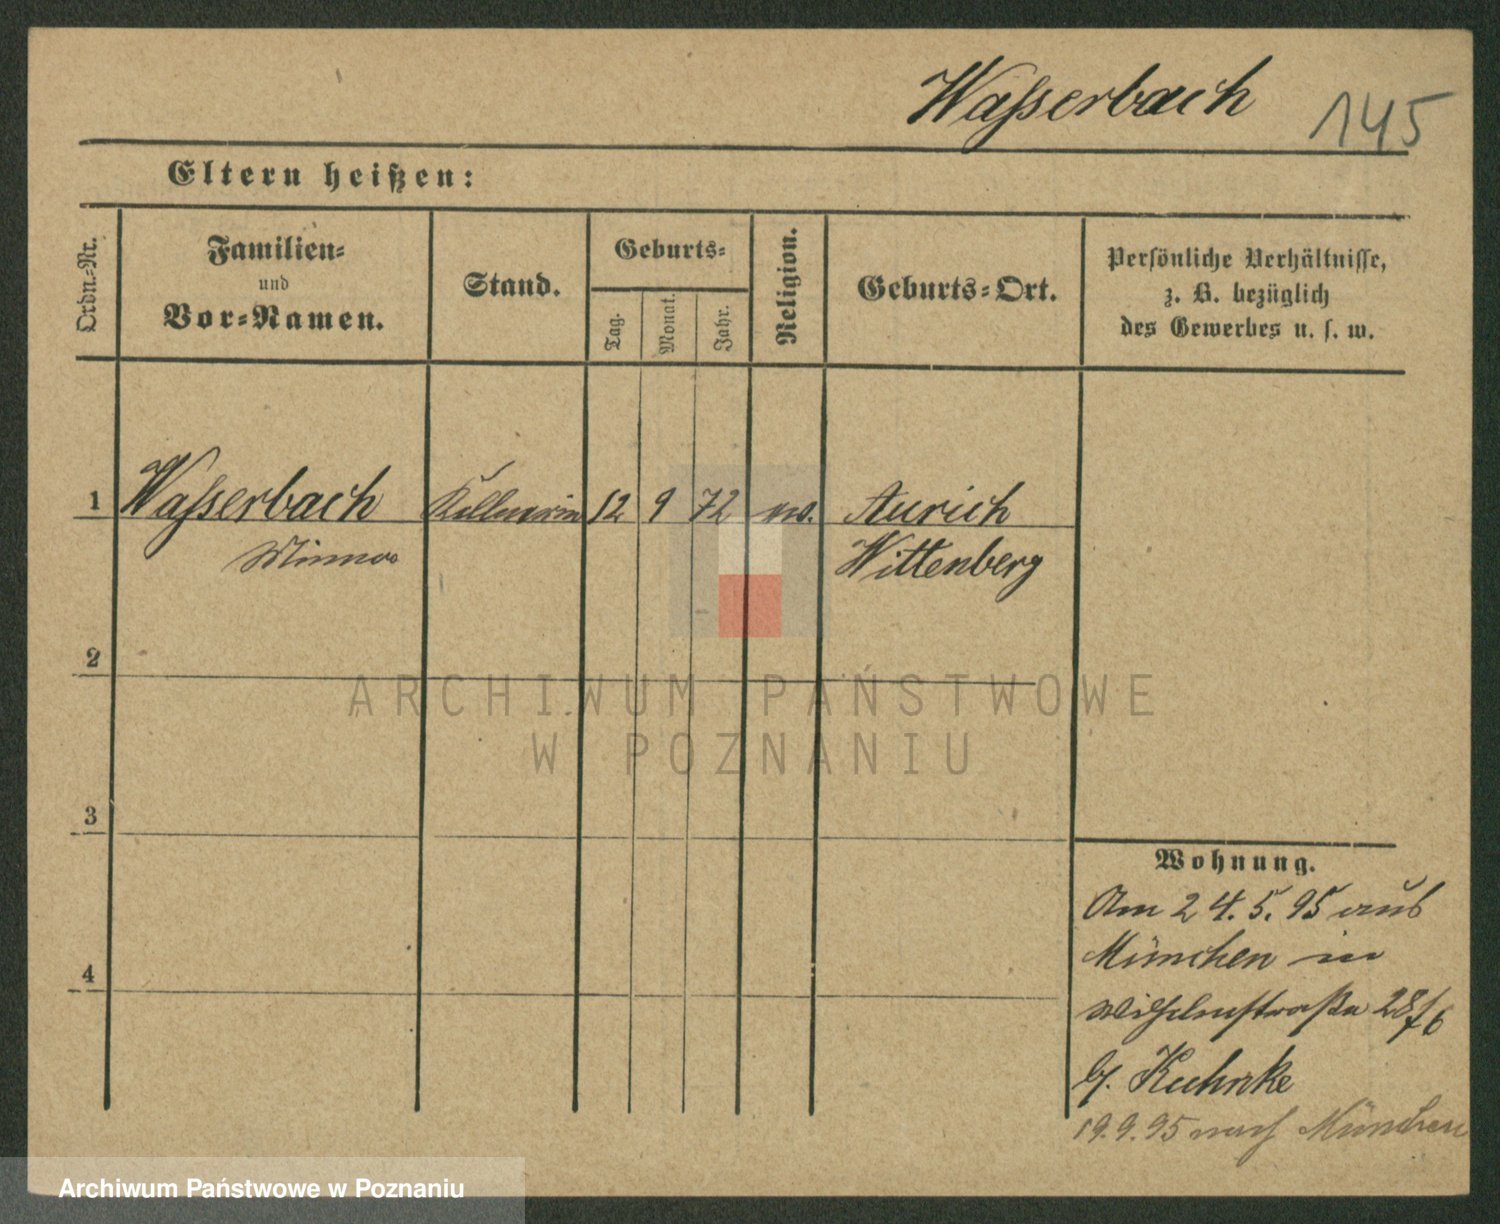 Waſserbach 145
Eltern heißen:
Ordn.-Nr.
Familien-
und
Vor-Namen.
Stand.
Geburts-
Tag.
Monat.
Jahr.
Religion.
Geburts-Ort.
Persönliche Verhältnisse,
z. B. bezüglich
des Gewerbes u. s. w.
1 Waſserbach Kellnerin 12 9 72 Aurich
Minna Wittenberg
2
3
4
ARCHIWUM PAŃSTWOWE
W POZNANIU
Wohnung.
Am 24.5.95 aus
München in
Wilhelmstraße 28/6
b/. Kuhnke
19.9.95 nach München
Archiwum Państwowe w Poznaniu